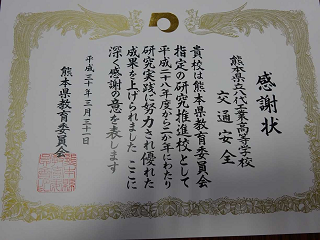 感謝状
交通安全
熊本県立八代工業高等学校
貴校は熊本県教育委員会
指定の研究推進校として
平成二十八年度から二か年にわたり
研究実践に努力され優れた
成果を上げられました ここに
深く感謝の意を表します
平成三十年三月三十一日
熊本県教育委員会